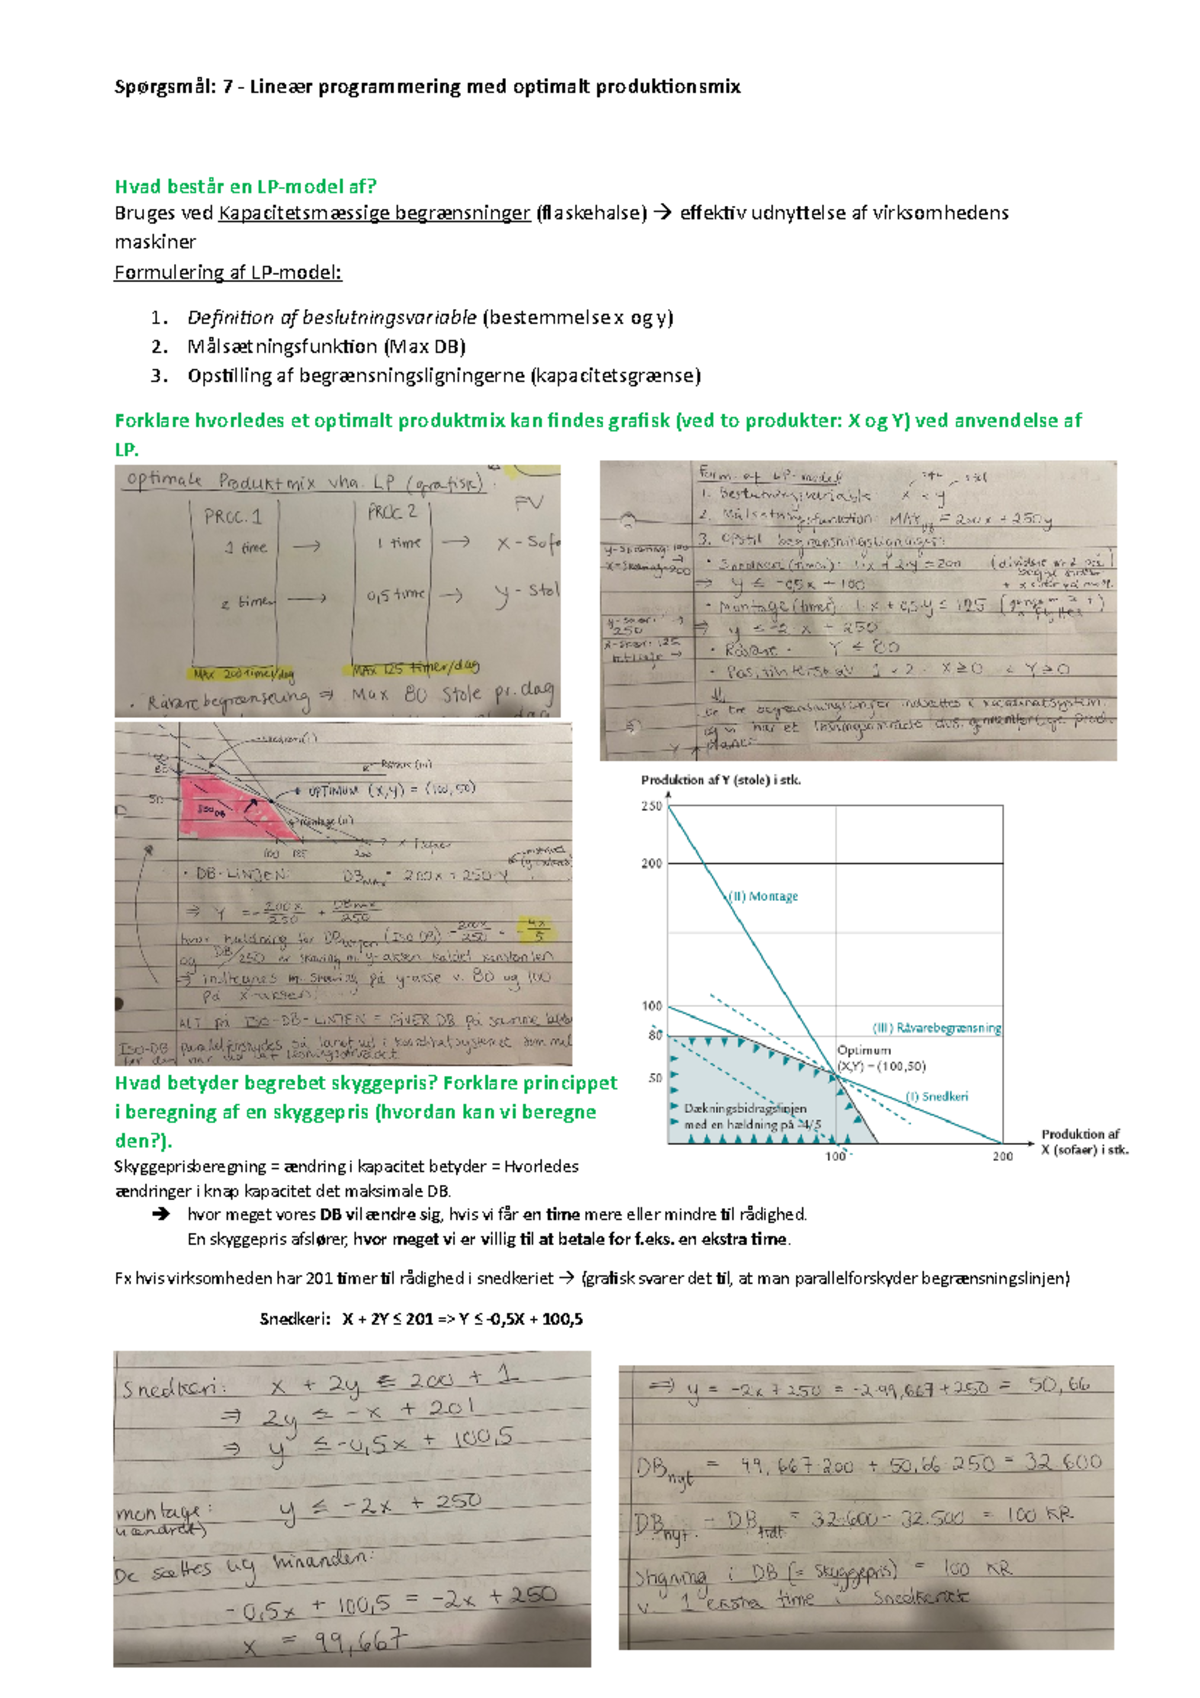 Spørgsmål: 7 - Lineær programmering med optimalt produktionsmix
Hvad består en LP-model af?
Bruges ved Kapacitetsmæssige begrænsninger (flaskehalse) → effektiv udnyttelse af virksomhedens
maskiner
Formulering af LP-model:
1. Definition af beslutningsvariable (bestemmelse x og y)
2. Målsætningsfunktion (Max DB)
3. Opstilling af begrænsningsligningerne (kapacitetsgrænse)
Forklare hvorledes et optimalt produktmix kan findes grafisk (ved to produkter: X og Y) ved anvendelse af
LP.
Optimale Produktmix vha. LP (grafisk).
FV
PROC. 1
PROC 2
1 time → 1 time → x - Sofa
2 timer → 0,5 time → y - Stol
MAX 200 timer/dag
MAX 125 timer/dag
• Råvarebegrænsning ⇒ Max 80 stole pr. dag
Form. af LP-model
1. Bestemmelsvariable x < y
2. Målsætningsfunktion: MAX = 200x + 250y
3. Opstil begrænsningsligninger:
• Snedkeri (timer): 1·x + 2·y = 200
⇒ y ≤ -0,5x + 100
• Montage (timer) 1·x + 0,5·y ≤ 125
⇒ y ≤ -2·x + 250
• Råvare - Y ≤ 80
X ≥ 0 Y ≥ 0
De tre begrænsningslinjer indsættes i koordinatsystem
Råvare (III)
OPTIMUM (X,Y) = (100,50)
50
Iso DB
Montage (II)
100 125 200
• DB-LINJEN: DB = 200x + 250·Y
⇒ Y = - 200x/250 + DBmax/250
hvor hældning for DB linjen (ISO DB) - 200x/250 = - 4x/5
og DB/250 er skæring m. y-aksen kaldet konstanten
⇒ indtegnes m. skæring på y-akse v. 80 og 100
på x-aksen
ALT på ISO-DB-LINJEN = GIVER DB på samme beløb
ISO-DB parallelforskydes så langt ud i koordinatsystemet som mul
Produktion af Y (stole) i stk.
250
200
(II) Montage
100
(III) Råvarebegrænsning
80
Optimum
(X,Y) = (100,50)
50
(I) Snedkeri
Dækningsbidragslinjen
med en hældning på -4/5
Produktion af
X (sofaer) i stk.
100
200
Hvad betyder begrebet skyggepris? Forklare princippet
i beregning af en skyggepris (hvordan kan vi beregne
den?).
Skyggeprisberegning = ændring i kapacitet betyder = Hvorledes
ændringer i knap kapacitet det maksimale DB.
→ hvor meget vores DB vil ændre sig, hvis vi får en time mere eller mindre til rådighed.
En skyggepris afslører, hvor meget vi er villig til at betale for f.eks. en ekstra time.
Fx hvis virksomheden har 201 timer til rådighed i snedkeriet → (grafisk svarer det til, at man parallelforskyder begrænsningslinjen)
Snedkeri: X + 2Y ≤ 201 => Y ≤ -0,5X + 100,5
Snedkeri: x + 2y ≤ 200 + 1
⇒ 2y ≤ -x + 201
⇒ y ≤ -0,5x + 100,5
montage: y ≤ -2x + 250
(uændret)
De sættes lig hinanden:
-0,5x + 100,5 = -2x + 250
x = 99,667
⇒ y = -2x + 250 = -2·99,667 + 250 = 50,66
DBnyt = 99,667·200 + 50,66·250 = 32.600
DBnyt - DBtidl = 32.600 - 32.500 = 100 KR
Stigning i DB (= skyggepris) = 100 KR
v. 1 ekstra time i Snedkeriet